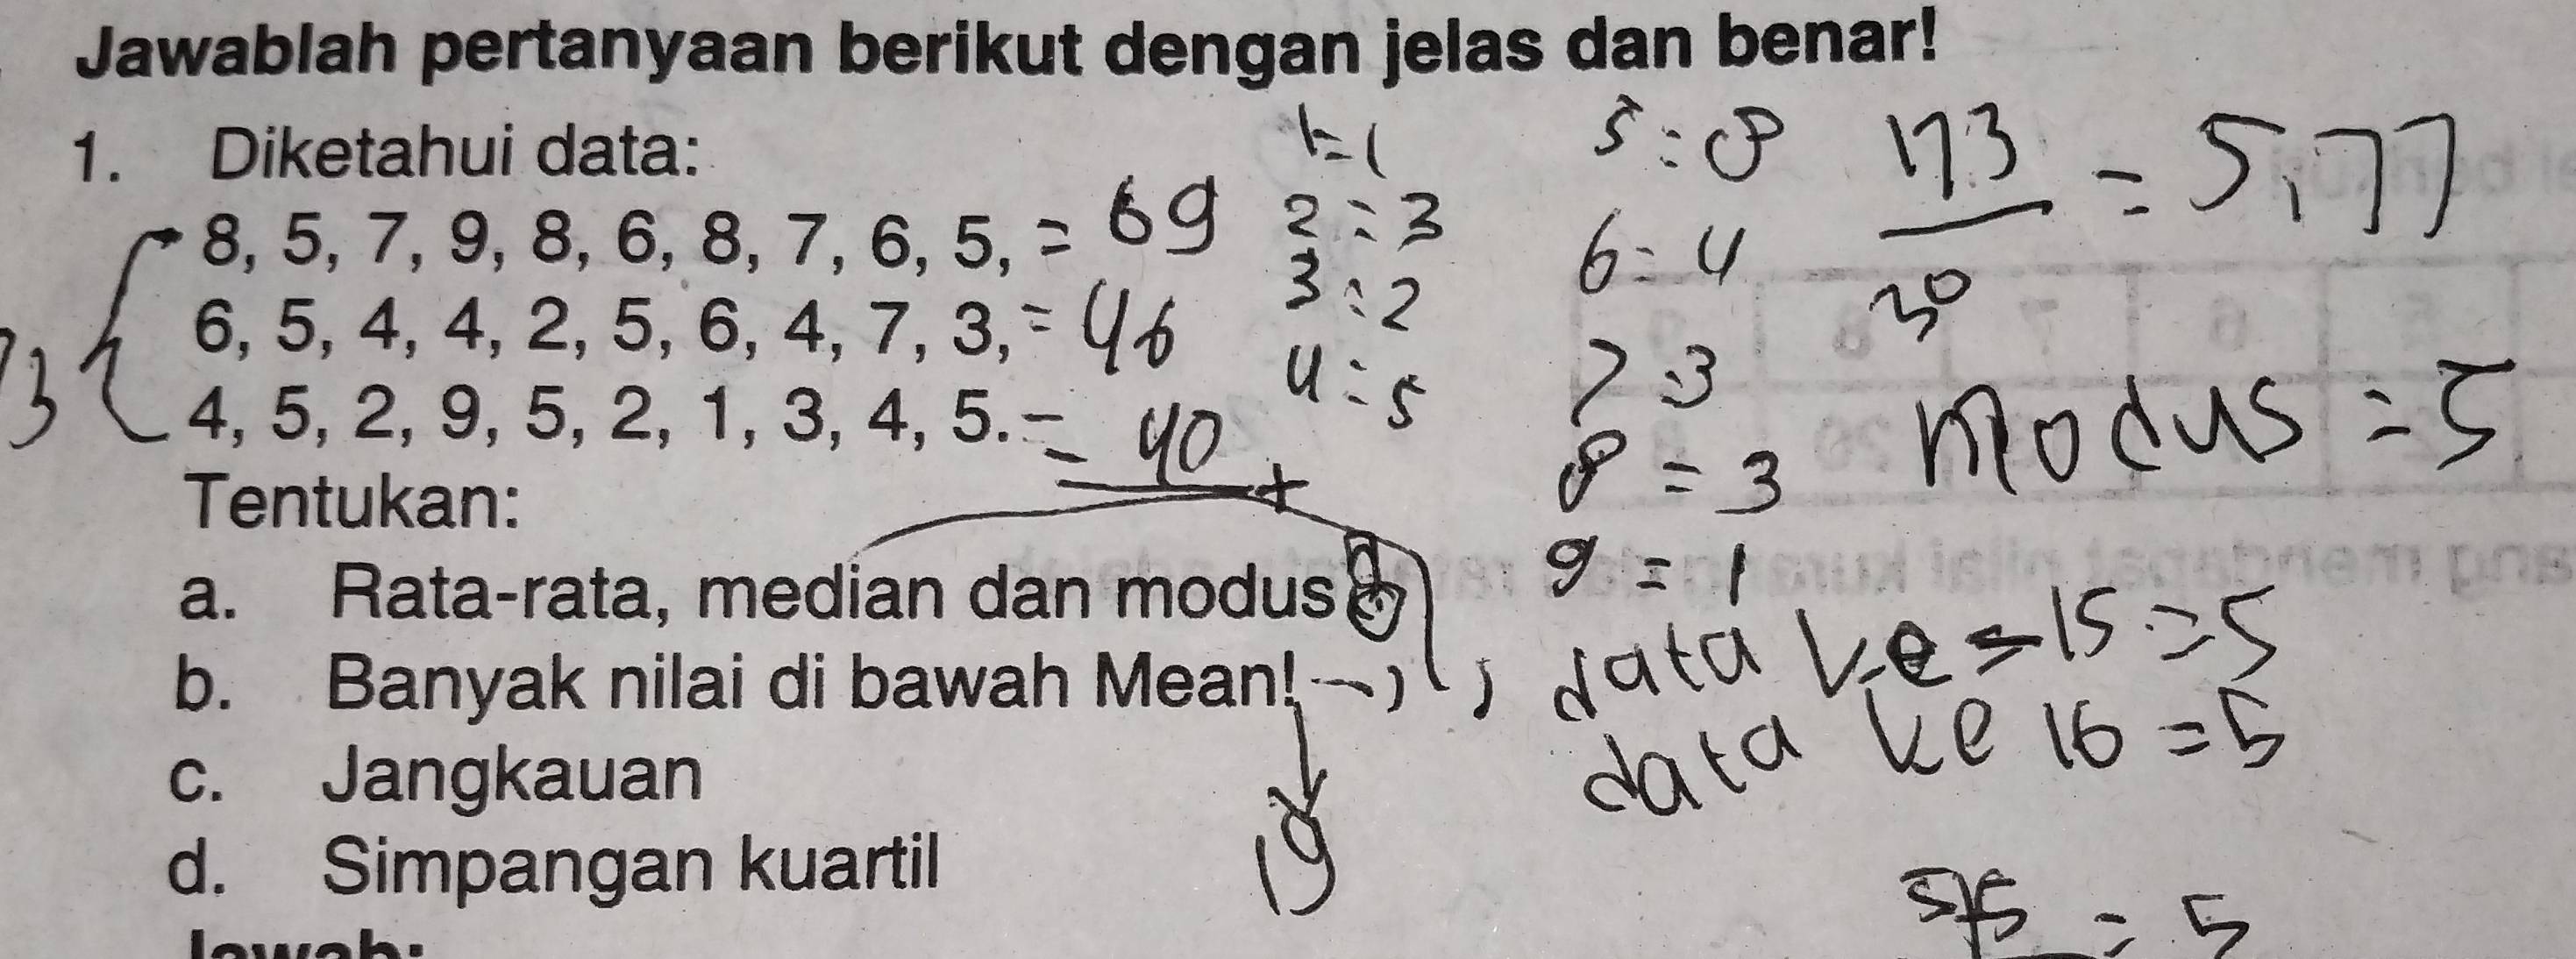 Jawablah pertanyaan berikut dengan jelas dan benar!
1. Diketahui data:
8, 5, 7, 9, 8, 6, 8, 7, 6, 5, = 69
6, 5, 4, 4, 2, 5, 6, 4, 7, 3, = 46
4, 5, 2, 9, 5, 2, 1, 3, 4, 5. = 40 +
Tentukan:
a. Rata-rata, median dan modus
b. Banyak nilai di bawah Mean!
c. Jangkauan
d. Simpangan kuartil
19
1=1
2=3
3:2
4:5
5:8
6:4
7:3
8=3
9=1
173
= 5,77
30
Modus = 5
data ke = 15 = 5
data ke 16 = 5
5+5 = 5
Jawab: